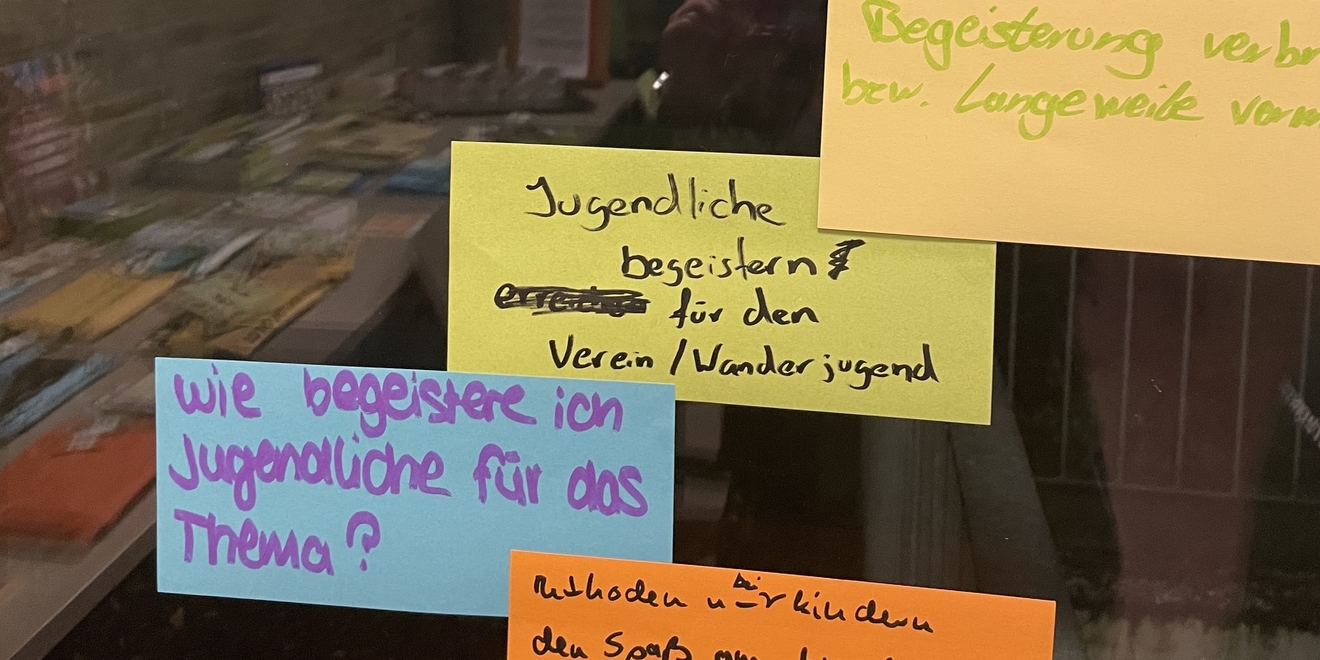 Begeisterung
bzw. Langeweile
Jugendliche
begeistern
für den
Verein / Wanderjugend
wie begeistere ich
Jugendliche für das
Thema?
Methoden u bei kindern
den Spaß